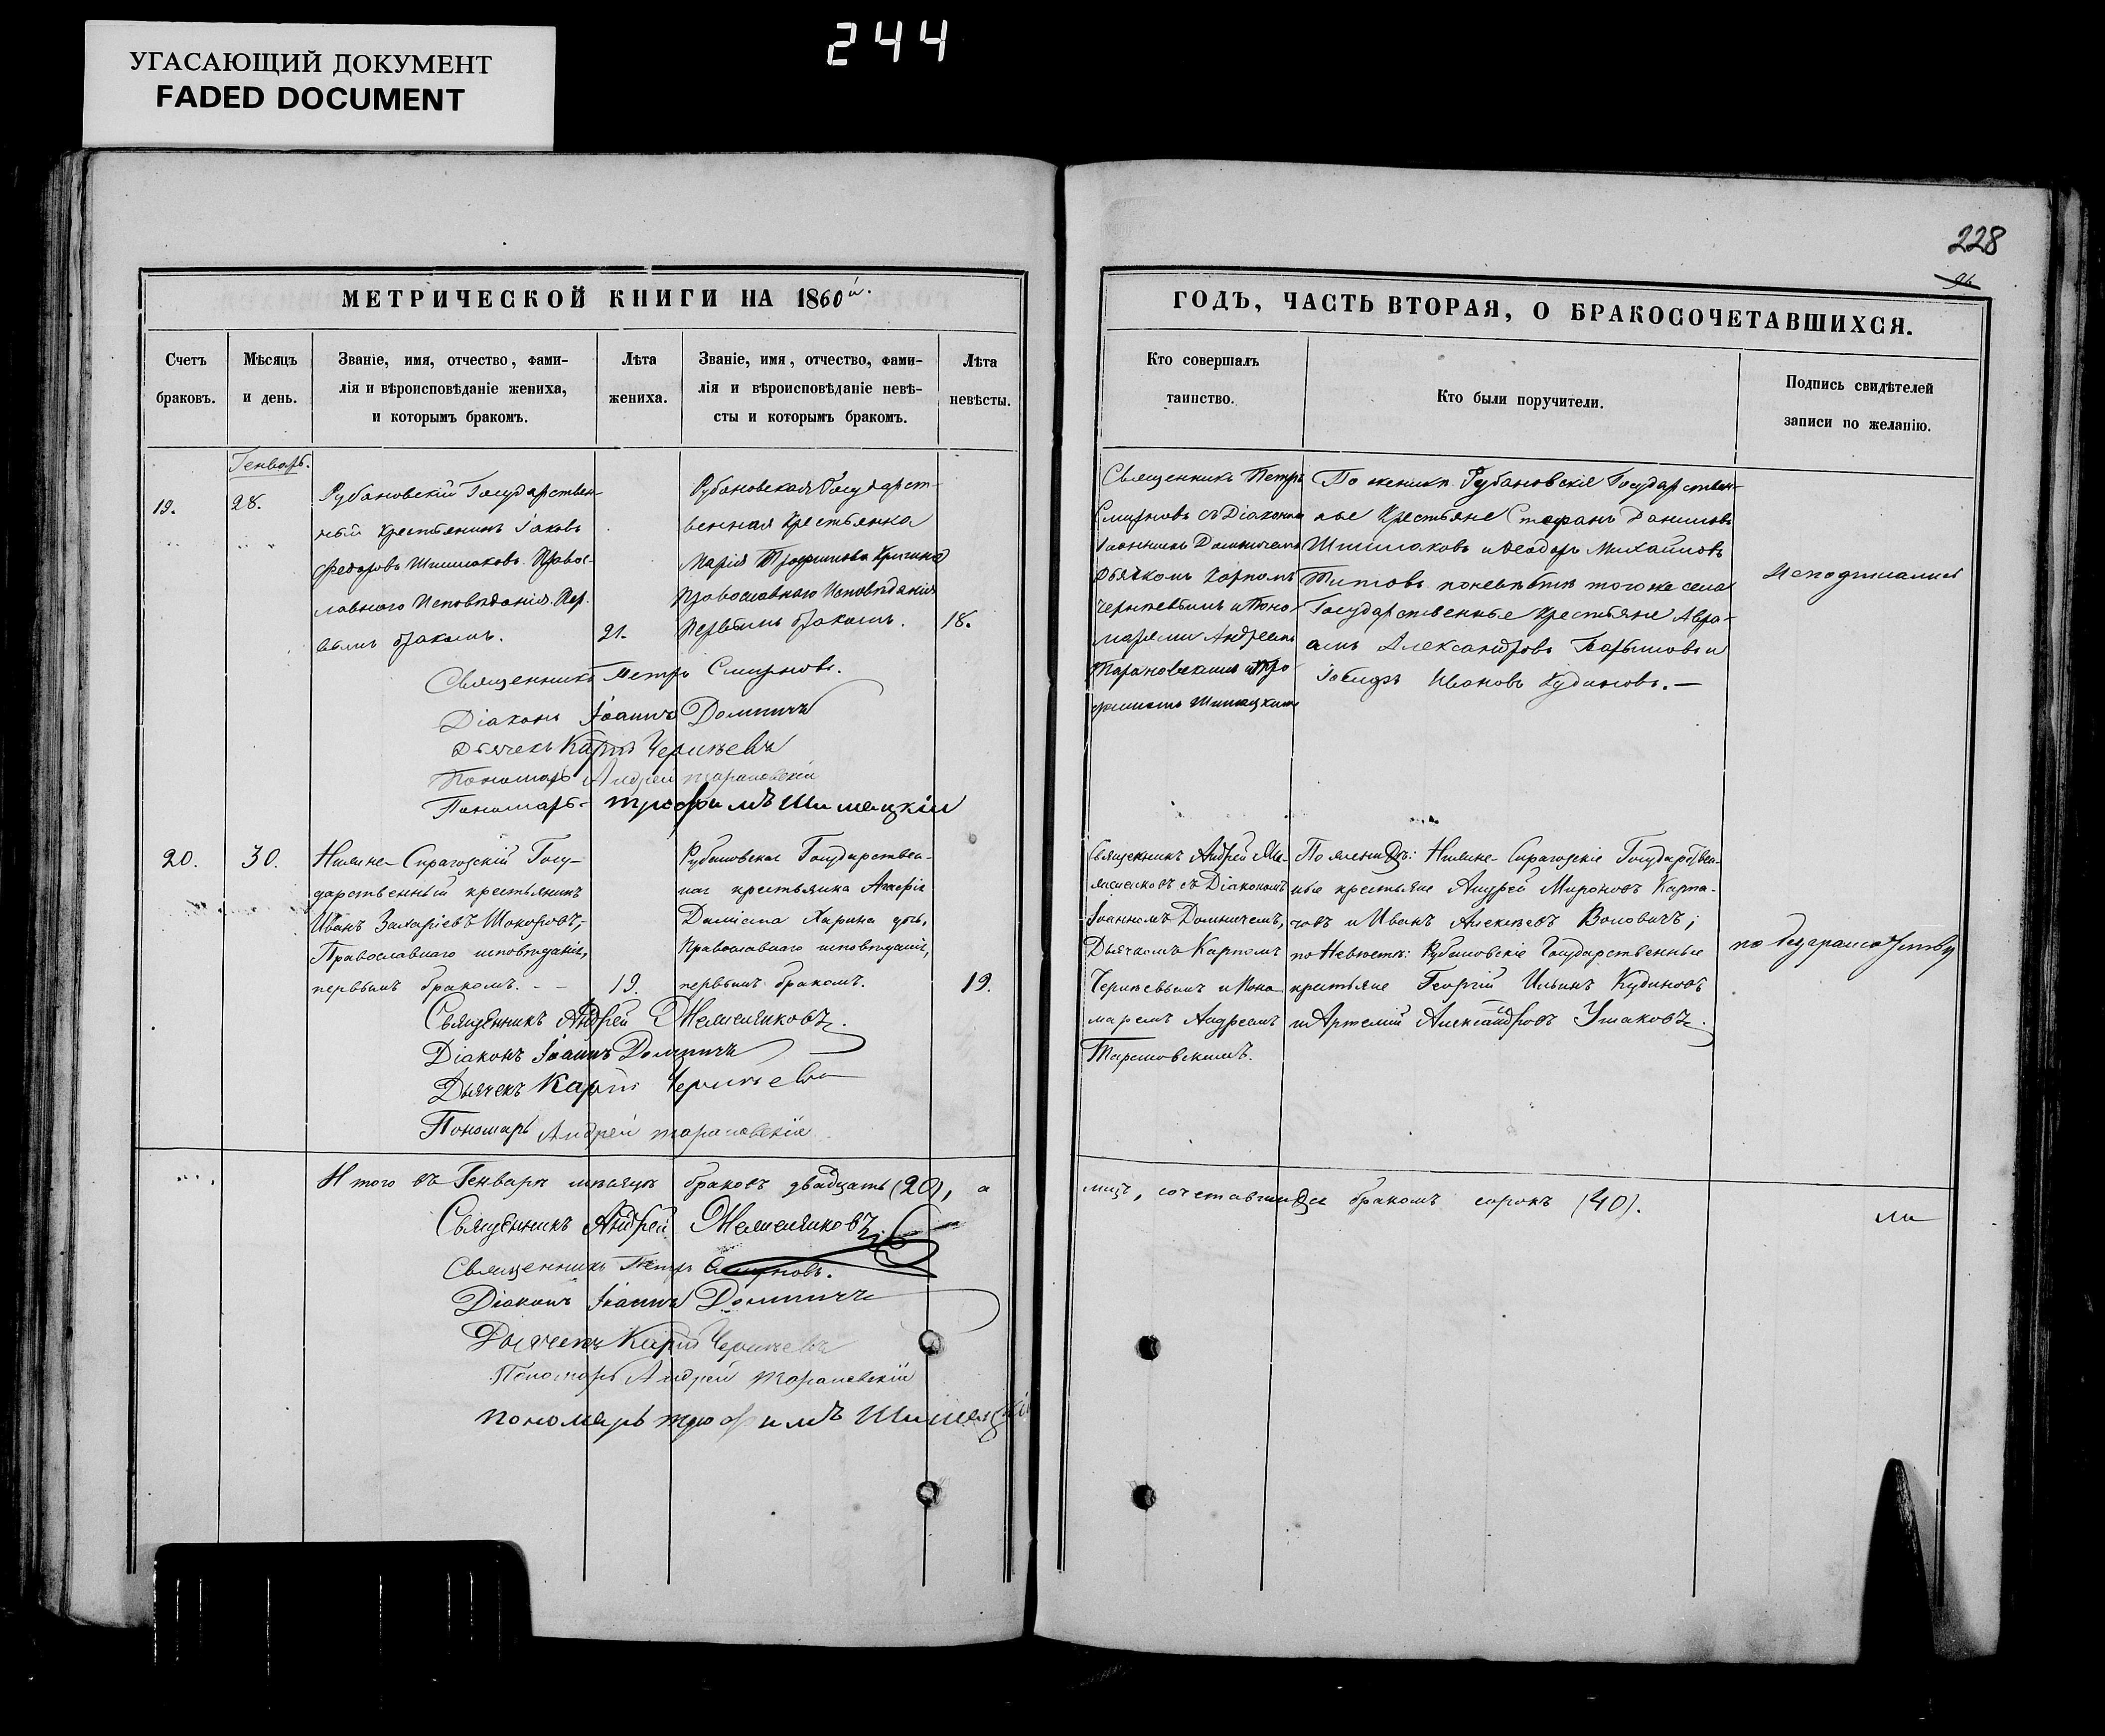 244
УГАСАЮЩИЙ ДОКУМЕНТ
FADED DOCUMENT
228
МЕТРИЧЕСКОЙ КНИГИ НА 1860й.
Счетъ
браковъ.
Мѣсяцъ
и день.
Званіе, имя, отчество, фами-
лія и вѣроисповѣданіе жениха,
и которымъ бракомъ.
Лѣта
жениха.
Званіе, имя, отчество, фами-
лія и вѣроисповѣданіе невѣ-
сты и которымъ бракомъ.
Лѣта
невѣсты.
Генварь.
19.
28.
Рубановскій Государствен-
ный крестьянинъ Іаковъ
Федоровъ Правос-
лавнаго Исповѣданія. Пер-
вымъ бракомъ.
21.
Рубановская Государст-
венная крестьянка
Марія Трофимова
Православнаго Исповѣданія
Первымъ бракомъ.
18.
Священникъ Петръ Смирновъ.
Діаконъ Іоаннъ Домничъ
Дьячекъ Карпъ
Пономарь Андрей Тарановскій
Пономарь Трофимъ
20.
30.
Нижне-Сірагозскій Госу-
дарственный крестьянинъ
Иванъ Захаріевъ
Православнаго исповѣданія,
первымъ бракомъ. - -
19.
Рубановская Государствен-
ная крестьянка Агафія
Даміана Харина дочь,
Православнаго исповѣданія,
первымъ бракомъ.
19.
Священникъ Андрей
Діаконъ Іоаннъ Домничъ
Дьячекъ Карпъ
Пономарь Андрей Тарановскій
Итого въ Генварѣ мѣсяцѣ браковъ двадцать (20), а
Священникъ Андрей
Священникъ Петръ Смирновъ.
Діаконъ Іоаннъ Домничъ
Дьячекъ Карпъ
Пономарь Андрей Тарановскій
пономарь трофимъ
ГОДЪ, ЧАСТЬ ВТОРАЯ, О БРАКОСОЧЕТАВШИХСЯ.
Кто совершалъ
таинство.
Кто были поручители.
Подпись свидѣтелей
записи по желанію.
Священникъ Петръ
Смирновъ съ Діакономъ
Іоанномъ Домничемъ
Дьячкомъ Карпомъ
и Поно-
марями Андреемъ
Тарановскимъ и Тро-
фимомъ
По женихѣ Рубановскіе Государствен-
ные крестьяне Стефанъ Даниловъ
и Ѳеодоръ Михайловъ
Титовъ по невѣстѣ того же села
Государственные крестьяне Авра-
амъ Александровъ и
Ивановъ Кудиновъ. —
Священникъ Андрей
съ Діакономъ
Іоанномъ Домничемъ,
Дьячкомъ Карпомъ
и Поно-
маремъ Андреемъ
Тарановскимъ.
По женихѣ: Нижне-Сірагозскіе Государствен-
ные крестьяне Андрей Мироновъ
и Иванъ Алексѣевъ Воловичъ;
по Невѣстѣ: Рубановскіе Государственные
крестьяне Георгій Ильинъ Кудиновъ
и Артемій Александровъ Ушаковъ.
по безграмотству
лицъ, сочетавшихся бракомъ сорокъ (40).